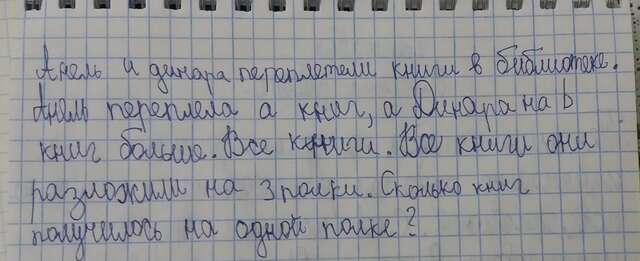 Анель и динара переплетели книги в библиотеке.
Анель переплела а книг, а Динара на b
книг больше. Все книги. Все книги они
разложили на 3 полки. Сколько книг
получилось на одной полке?